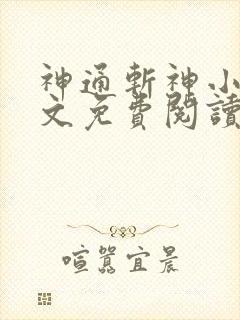 神通斬神小
文免費閱讀
喧囂宜晨